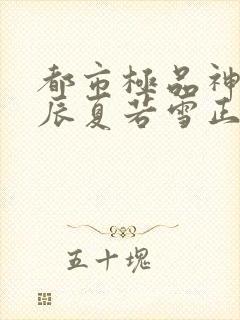 都市極品神
辰夏若雪正
五十塊